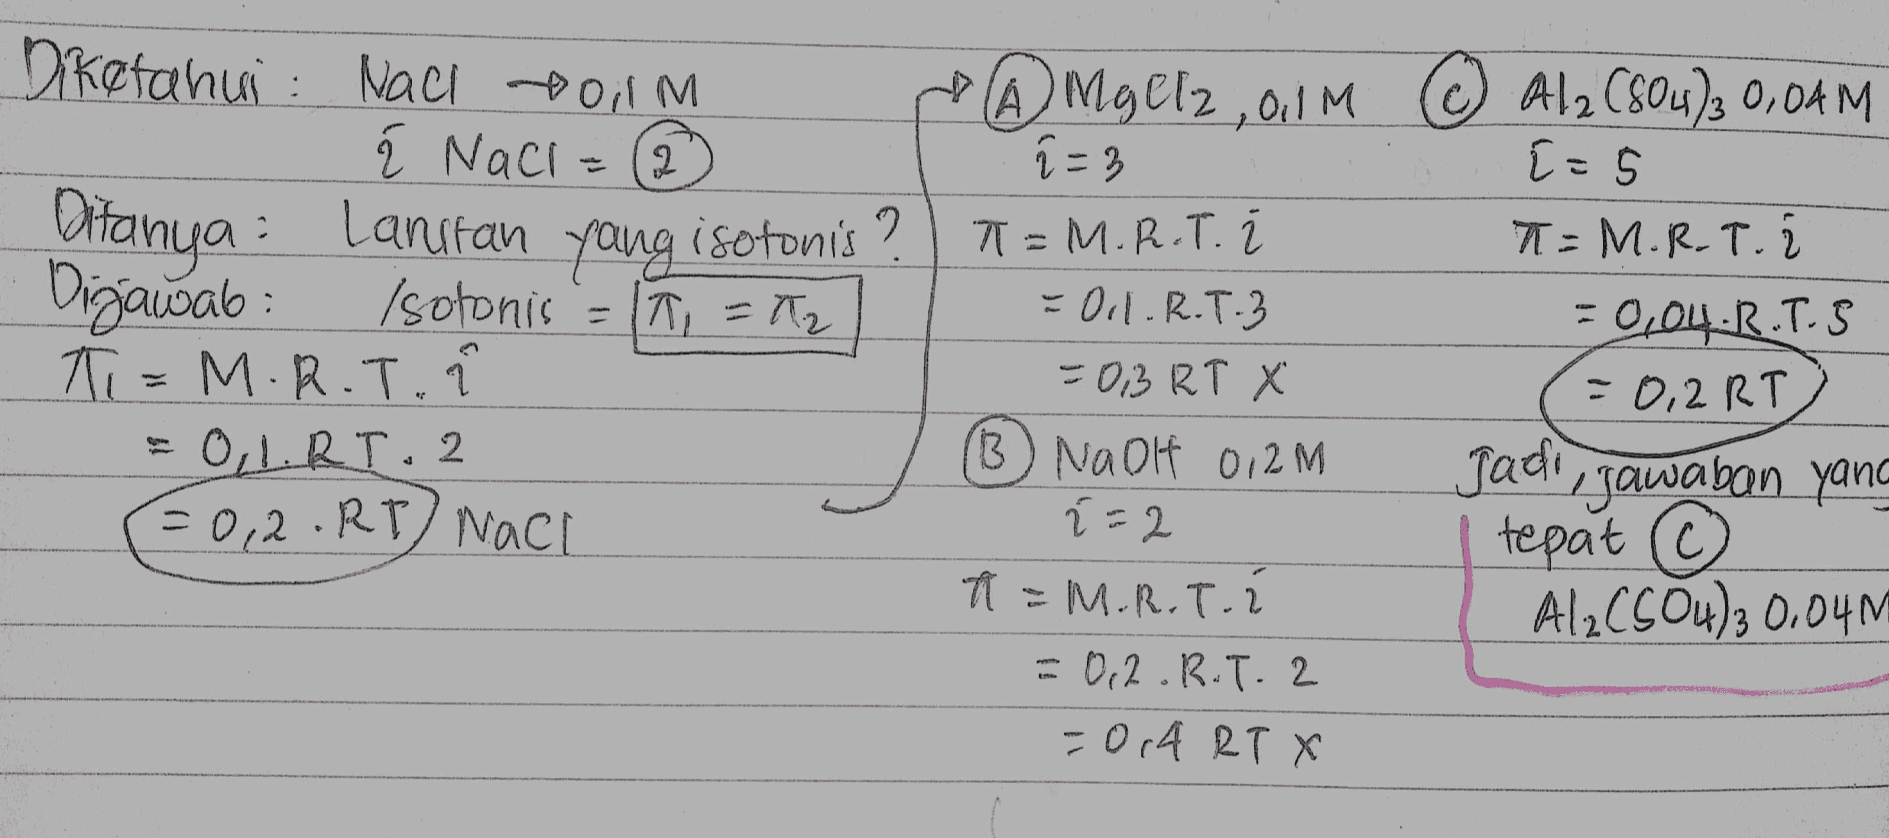 Diketahui : NaCl → 0,1 M
i NaCl = 2
Ditanya : Larutan yang isotonis ?
Dijawab : Isotonis = π₁ = π₂
π₁ = M . R . T . i
= 0,1 . R T . 2
= 0,2 . RT NaCl
→ A MgCl₂ , 0,1 M
i = 3
π = M . R . T . i
= 0,1 . R . T . 3
= 0,3 RT X
B NaOH 0,2 M
i = 2
π = M . R . T . i
= 0,2 . R . T . 2
= 0,4 RT X
C Al₂(SO₄)₃ 0,04 M
i = 5
π = M . R . T . i
= 0,04 . R . T . 5
= 0,2 RT
Jadi, jawaban yang
tepat C
Al₂(SO₄)₃ 0,04 M